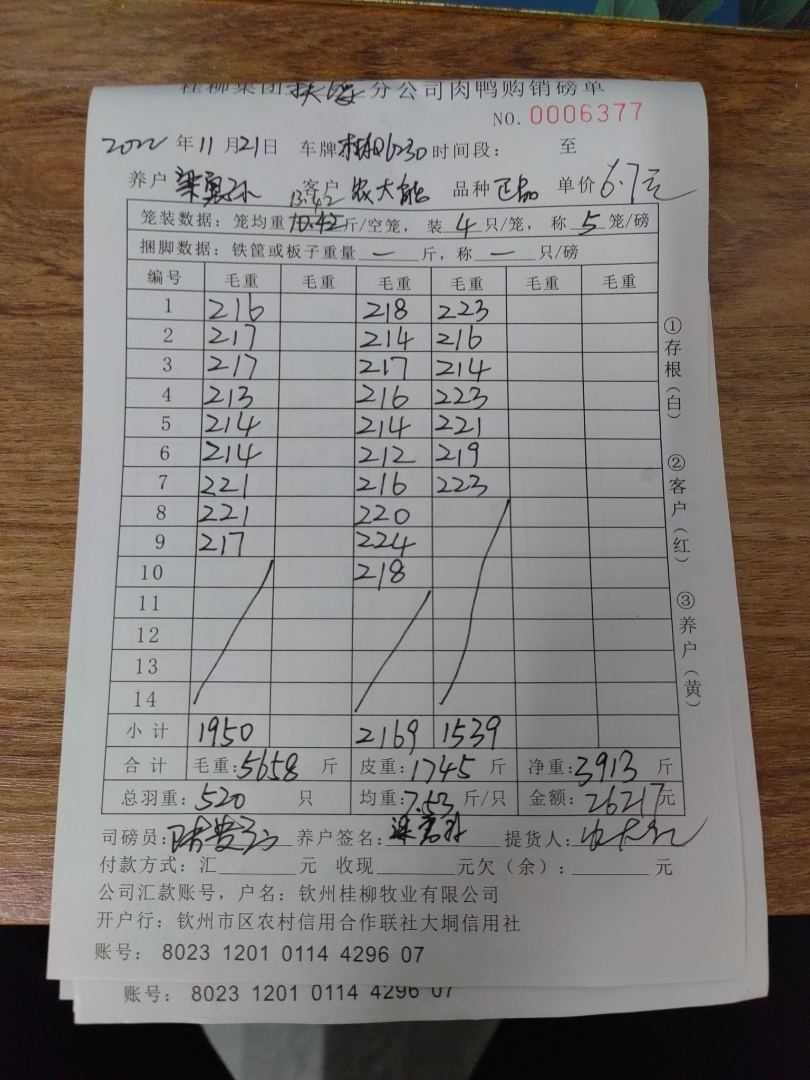 桂柳集团扶绥分公司肉鸭购销磅单
NO. 0006377
2022年11月21日 车牌 6230 时间段： 至
养户 客户 农大能 品种 正品 单价 6.7元
13.42
笼装数据：笼均重10.42斤/空笼，装4只/笼，称5笼/磅
捆脚数据：铁筐或板子重量一斤，称一只/磅
编号 毛重 毛重 毛重 毛重 毛重 毛重
1 216 218 223
2 217 214 216
3 217 217 214
4 213 216 223
5 214 214 221
6 214 212 219
7 221 216 223
8 221 220
9 217 224
10 218
11
12
13
14
小计 1950 2169 1539
合计 毛重：5658斤 皮重：1745斤 净重：3913斤
总羽重：520只 均重：7.53斤/只 金额：26217元
司磅员： 养户签名： 提货人：
付款方式：汇 元 收现 元欠（余）： 元
公司汇款账号，户名：钦州桂柳牧业有限公司
开户行：钦州市区农村信用合作联社大垌信用社
账号： 8023 1201 0114 4296 07
账号： 8023 1201 0114 4296 07
①存根（白）
②客户（红）
③养户（黄）